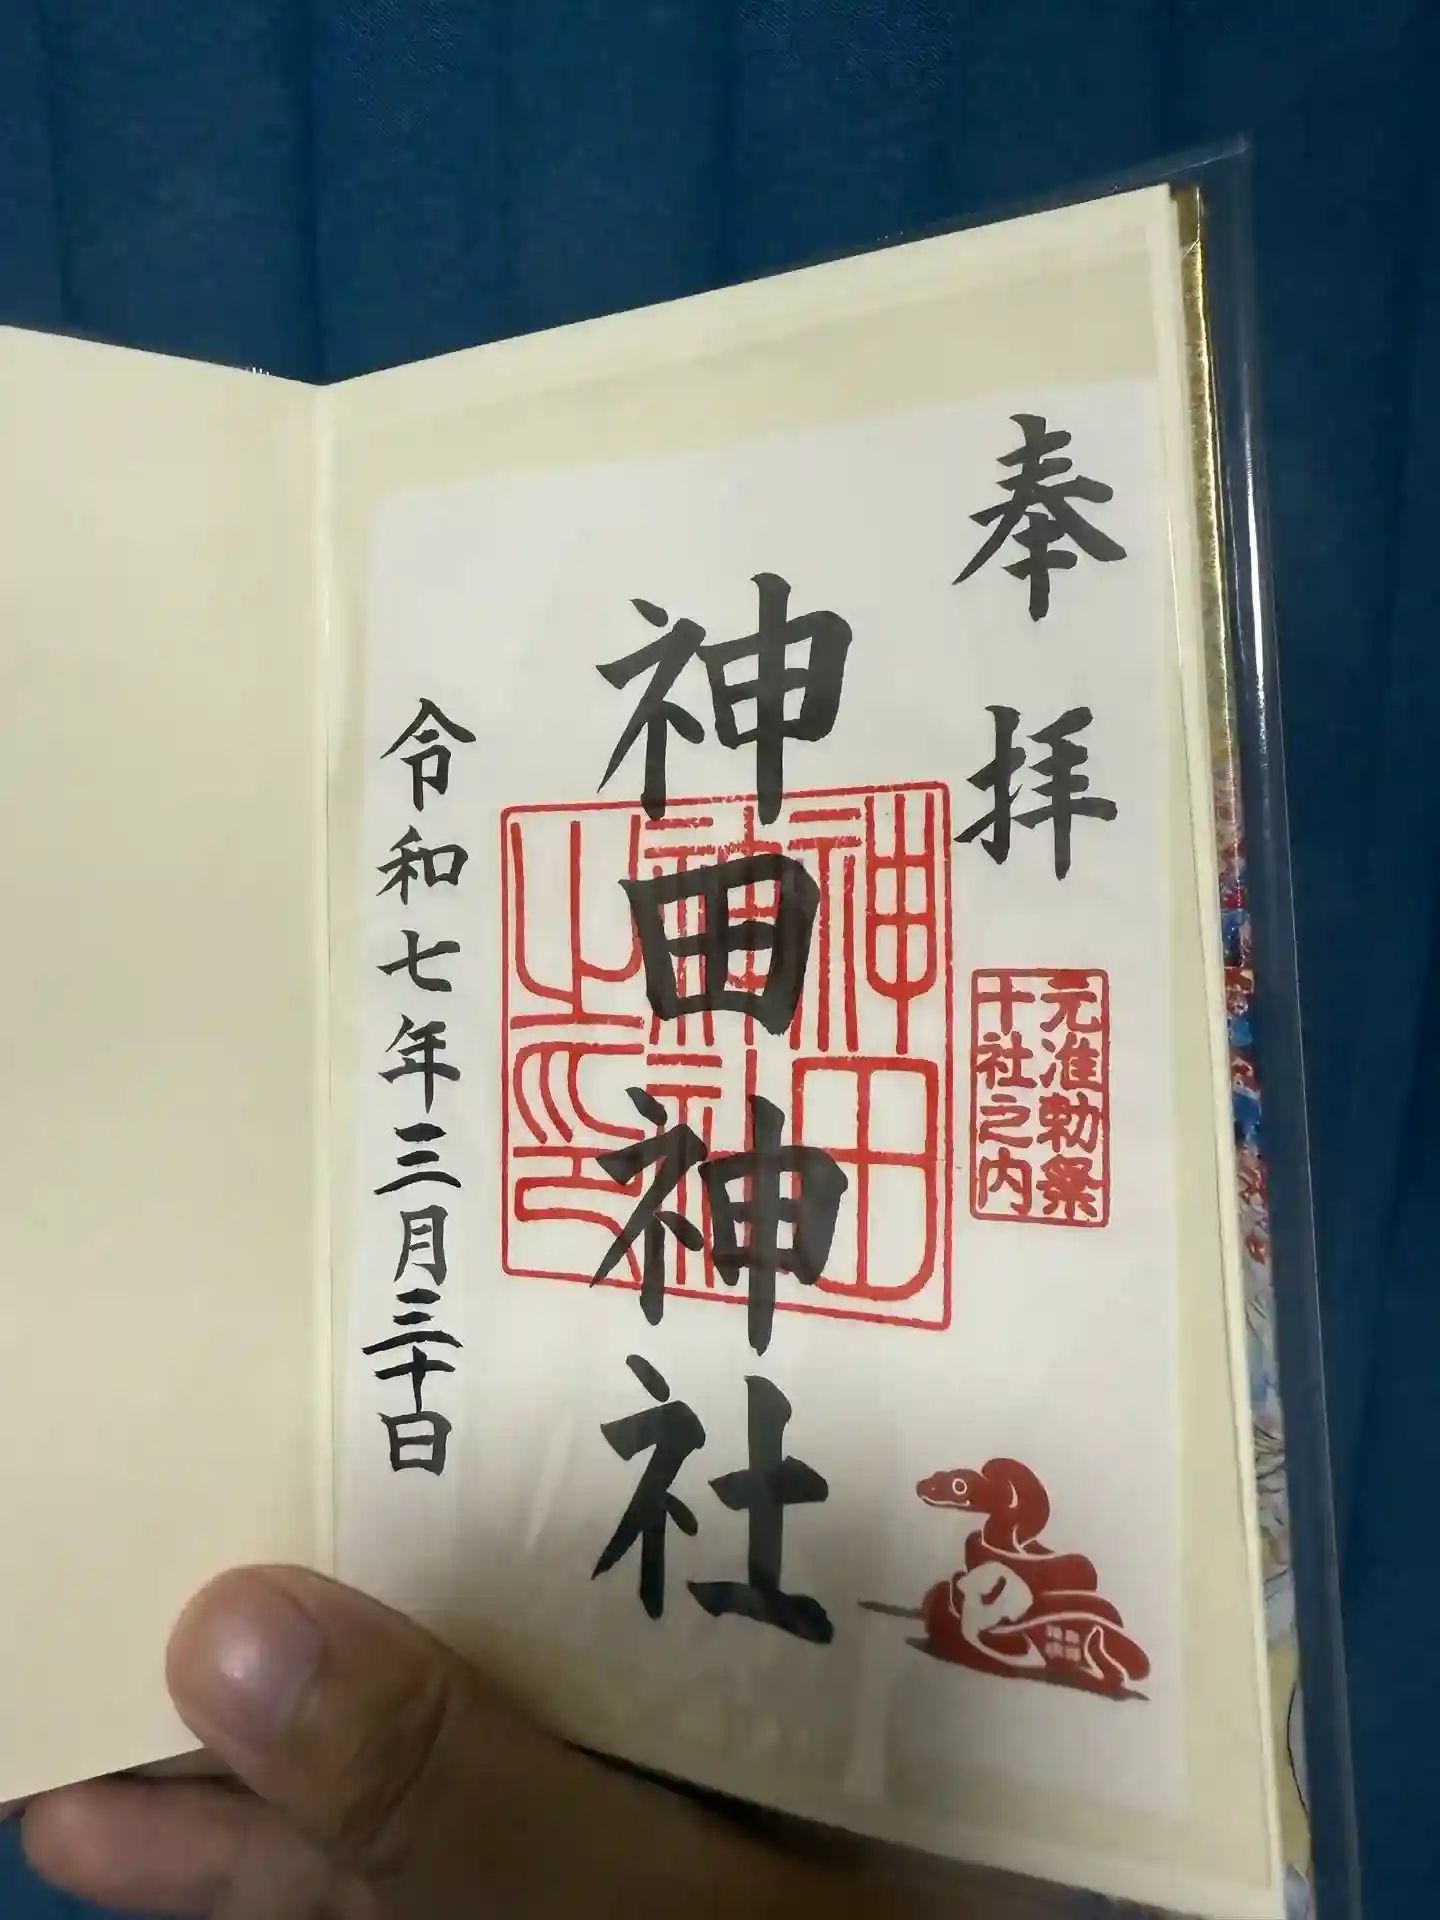 奉拝
元准勅祭
十社之内
神田神社
神田
神社
之印
令和七年三月三十日